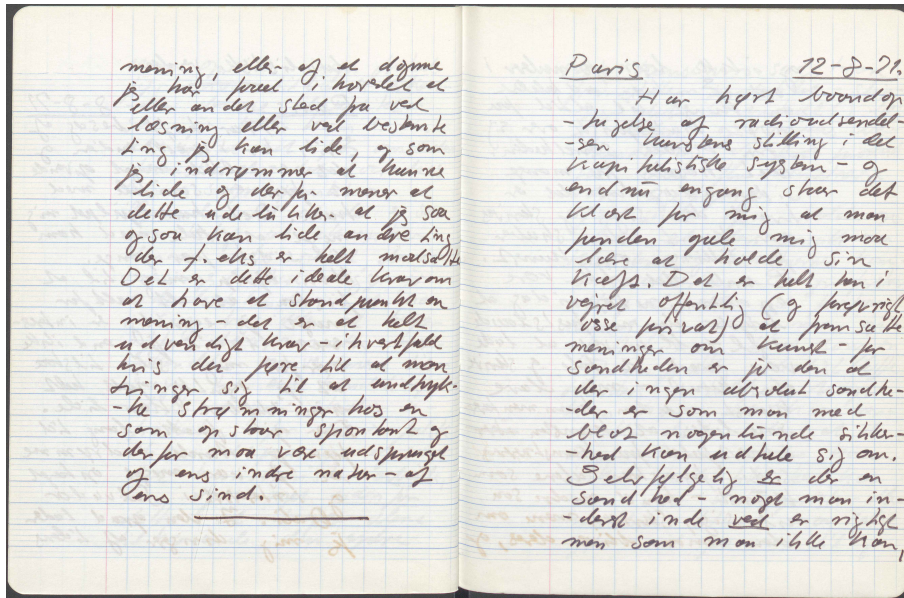 mening, eller af at dømme
jeg har prøvet i hovedet et
eller andet sted fra ved
læsning eller ved bestemte
ting jeg kan lide, og som
jeg indrømmer at kunne
lide og derfor mener at
dette udelukker at jeg saa
ogsaa kan lide andre ting
der f.eks er helt modsatte
Det er dette ideale krav om
at have et standpunkt en
mening - det er et helt
udvendigt krav - ihvertfald
hvis det fører til at man
tvinger sig til at undtryk-
-ke strømninger hos en
som opstaar spontant og
derfor maa være udsprunget
af ens indre natur - af
ens sind.
Paris 12-8-71.
Har hørt baandop
-tagelse af radioudsendel-
-sen kunstens stilling i det
kapitalistiske system - og
endnu engang staar det
klart for mig at man
fanden gale mig maa
lære at holde sin
kæft. Det er helt hen i
vejret offentlig (og forøvrigt
osse privat) at fremsætte
meninger om kunst - for
sandheden er jo den at
der ingen absolut sandhe-
-der er som man med
blot nogenlunde sikker-
-hed kan udtale sig om.
Selvfølgelig er der en
sandhed - noget man in-
-derst inde ved er rigtigt
men som man ikke kan,